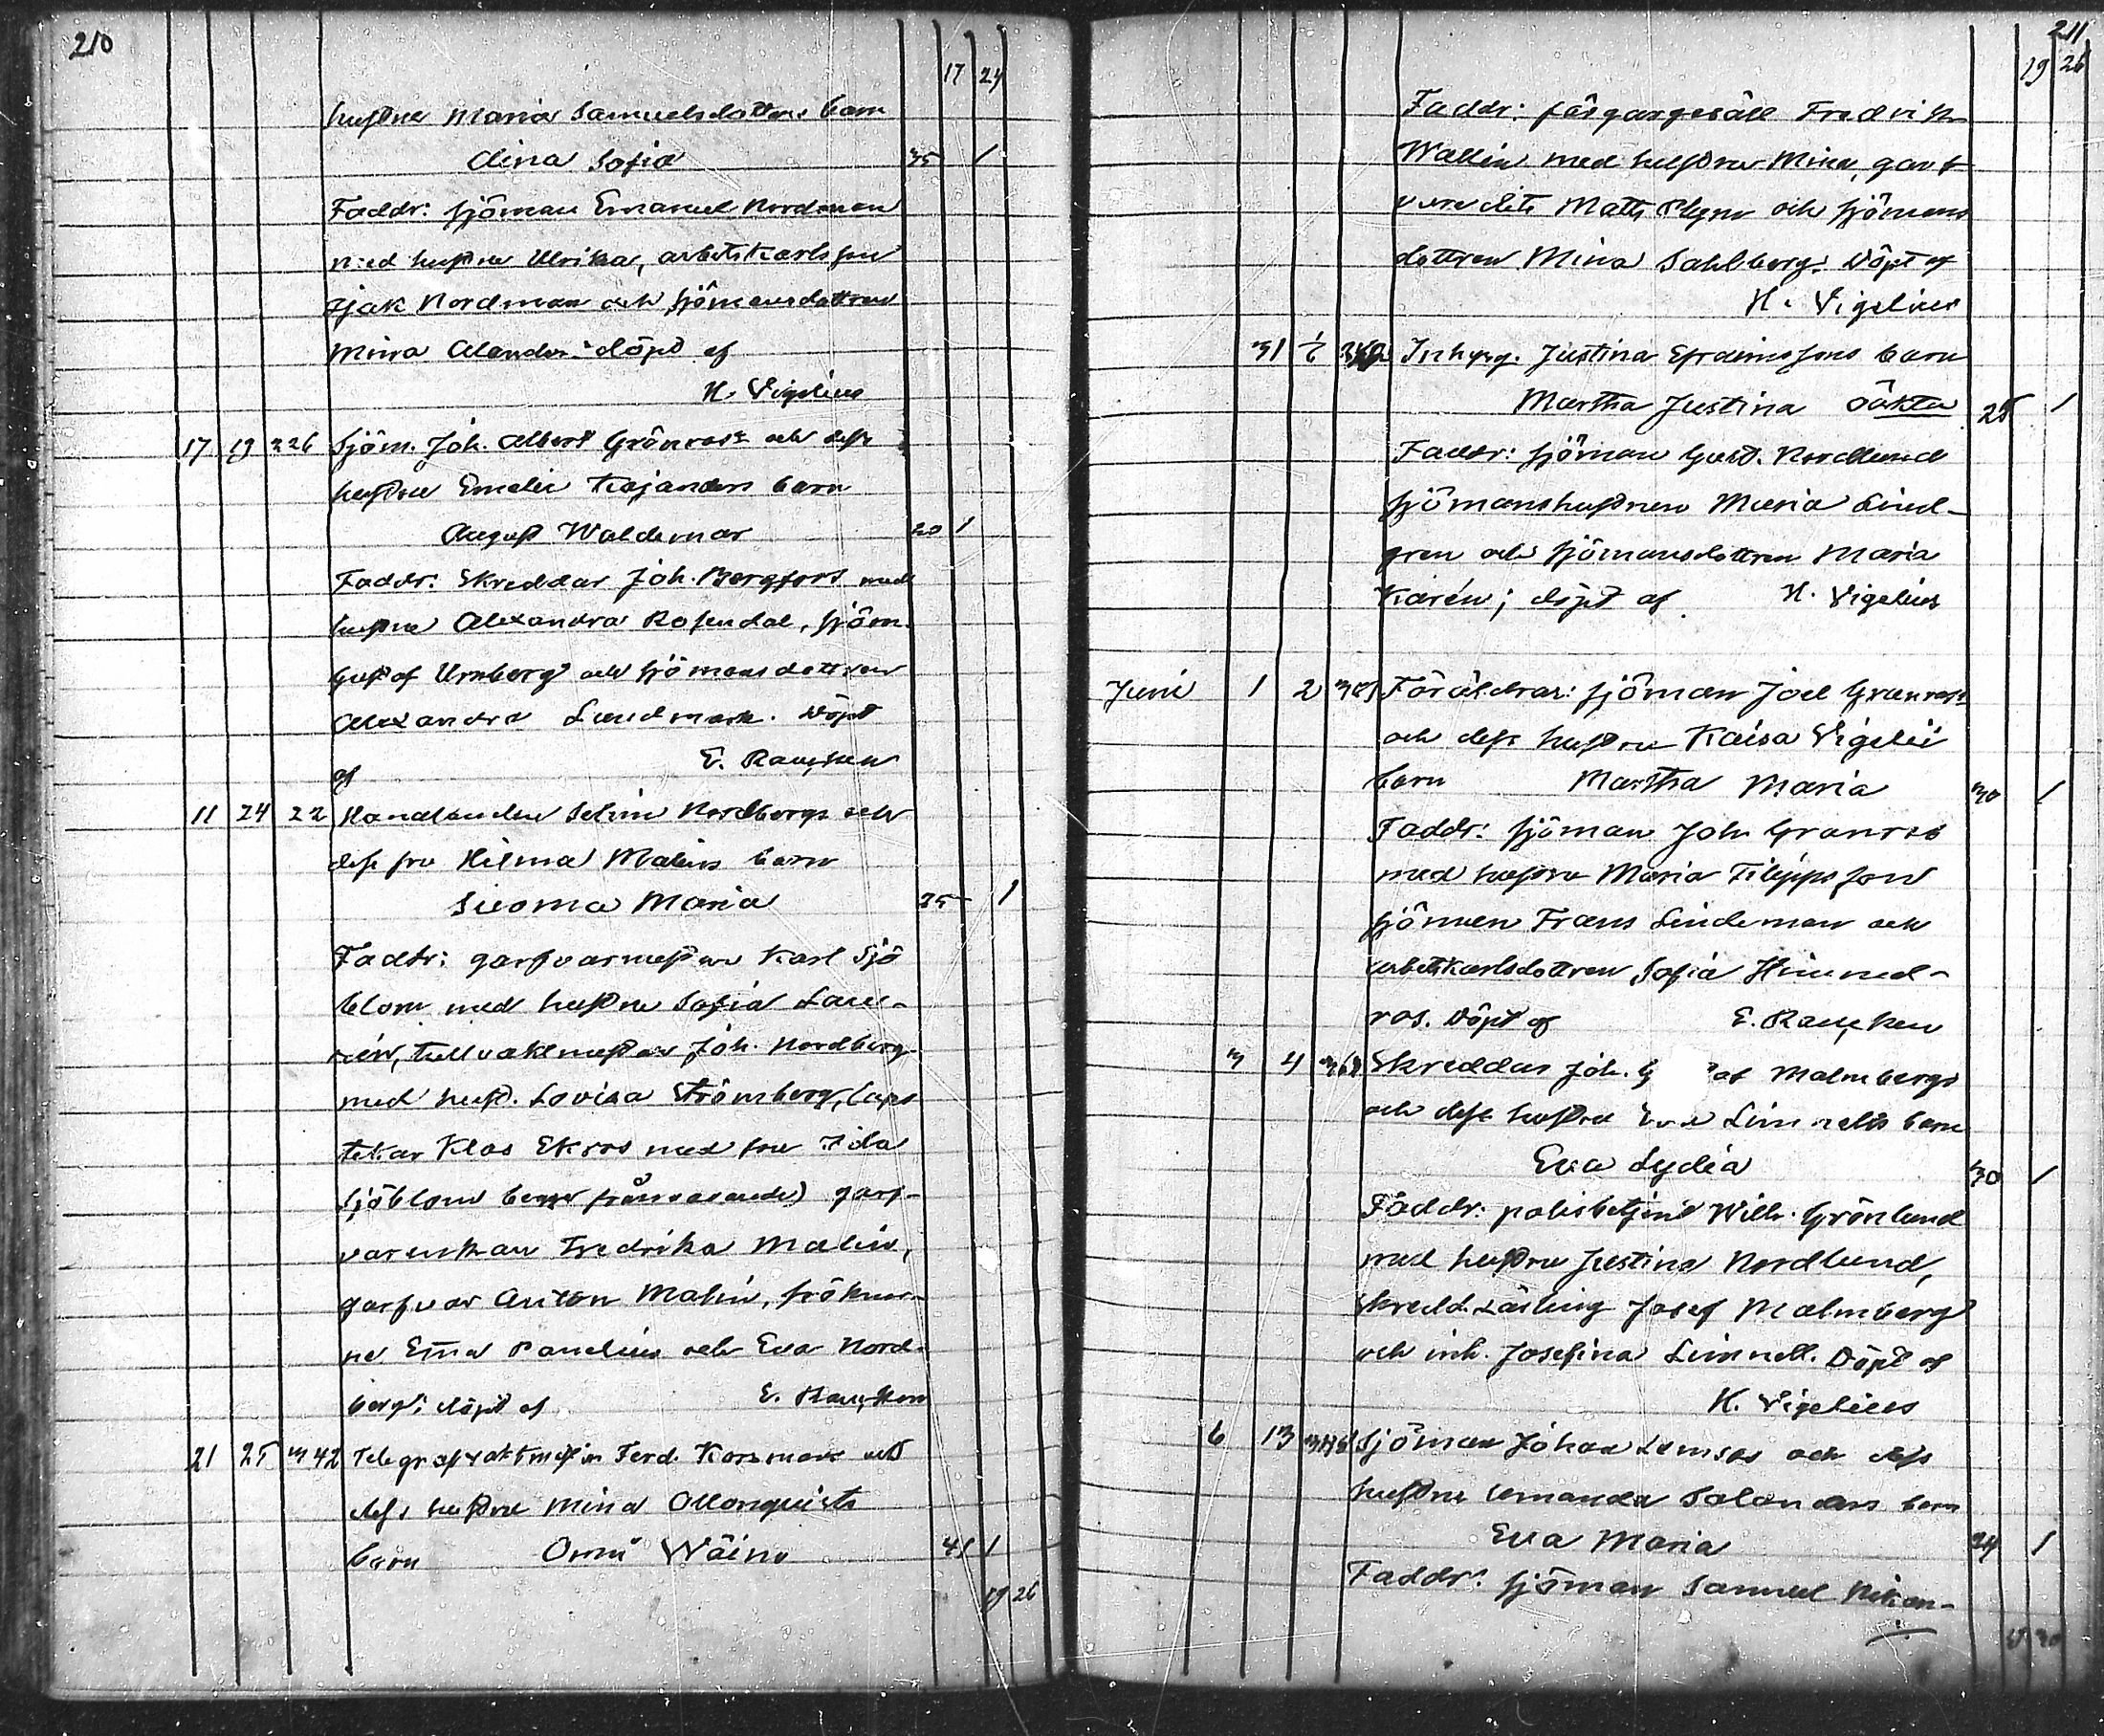 210
17 24
hustru Maria Samuelsdotters barn
Alina Sofia 35 1
Faddr: sjöman Emanuel Nordman
med hustru Ulrika, arbetskarlsson
Isak Nordman och sjömansdottren
Mina döpt af
H. Vigelius
17 19 226 Sjöm. Joh. Albert Grönros och dess
hustru Emelie Kajanders barn
August Waldemar 20 1
Faddr: Skreddar Joh. Bergfors med
hustru Alexandra Rosendal, sjöm.
Gustaf Urnberg och sjömansdottren
Alexandra Lundmark. Döpt
af E. Rancken
11 24 22 Handlanden Selim Nordbergs och
dess fru Hilma Malins barn
Suoma Maria 25 1
Faddr: garfvarmestare Karl Sjö
blom med hustru Sofia Lau-
rén, tullvaktmestar Joh. Nordberg
med hust. Lovisa Strömberg,
Klas Ekroos med fru Ida
Sjöblom frånvarande) garf-
varenkan Fredrika Malin,
garfvar Anton Malin, fröknar-
ne Em̄a Panelius och Eva Nord-
berg; döpt af E. Rancken
21 25 342 Telegrafvaktmestar Ferd. Korsmans och
dess hustru Mina Ollonqvists
barn Onni Wäinö 41 1
19 26
211
19 26
Faddr: färgargesäll Fredrik
Wallin med hustru Mina, garf-
Matts och sjömans
dottren Mina Sahlberg. Döpt af
H. Vigelius
31 1/6 Inhysg. Justina Efraimssons barn
Martha Justina oäkta 25 1
Faddr: sjöman Gust. Nordlund
sjömanshustrun Maria Lind-
gren och sjömansdottren Maria
Karén; döpt af H. Vigelius
Juni 1 2 Föräldrar: sjöman Joel Granroos
och dess hustru Kaisa Vigelii
barn Martha Maria 30 1
Faddr: sjöman Joh Granros
med hustru Maria Filippsson
sjöman Frans Lindeman och
arbetskarlsdottren Sofia Himmel-
ros. Döpt af E. Rancken
3 4 Skreddar Joh. G af Malmbergs
och dess hustru Eva Linnells barn
Eva Lydia 30 1
Faddr: polisbetjent Wilh. Grönlund
med hustru Justina Nordlund,
skredd. lärling Josef Malmberg
och inh. Josefina Linnell. Döpt af
H. Vigelius
6 13 Sjöman Johan och dess
hustru Amanda Salonders barn
Eva Maria 24 1
Faddr: sjöman Samuel